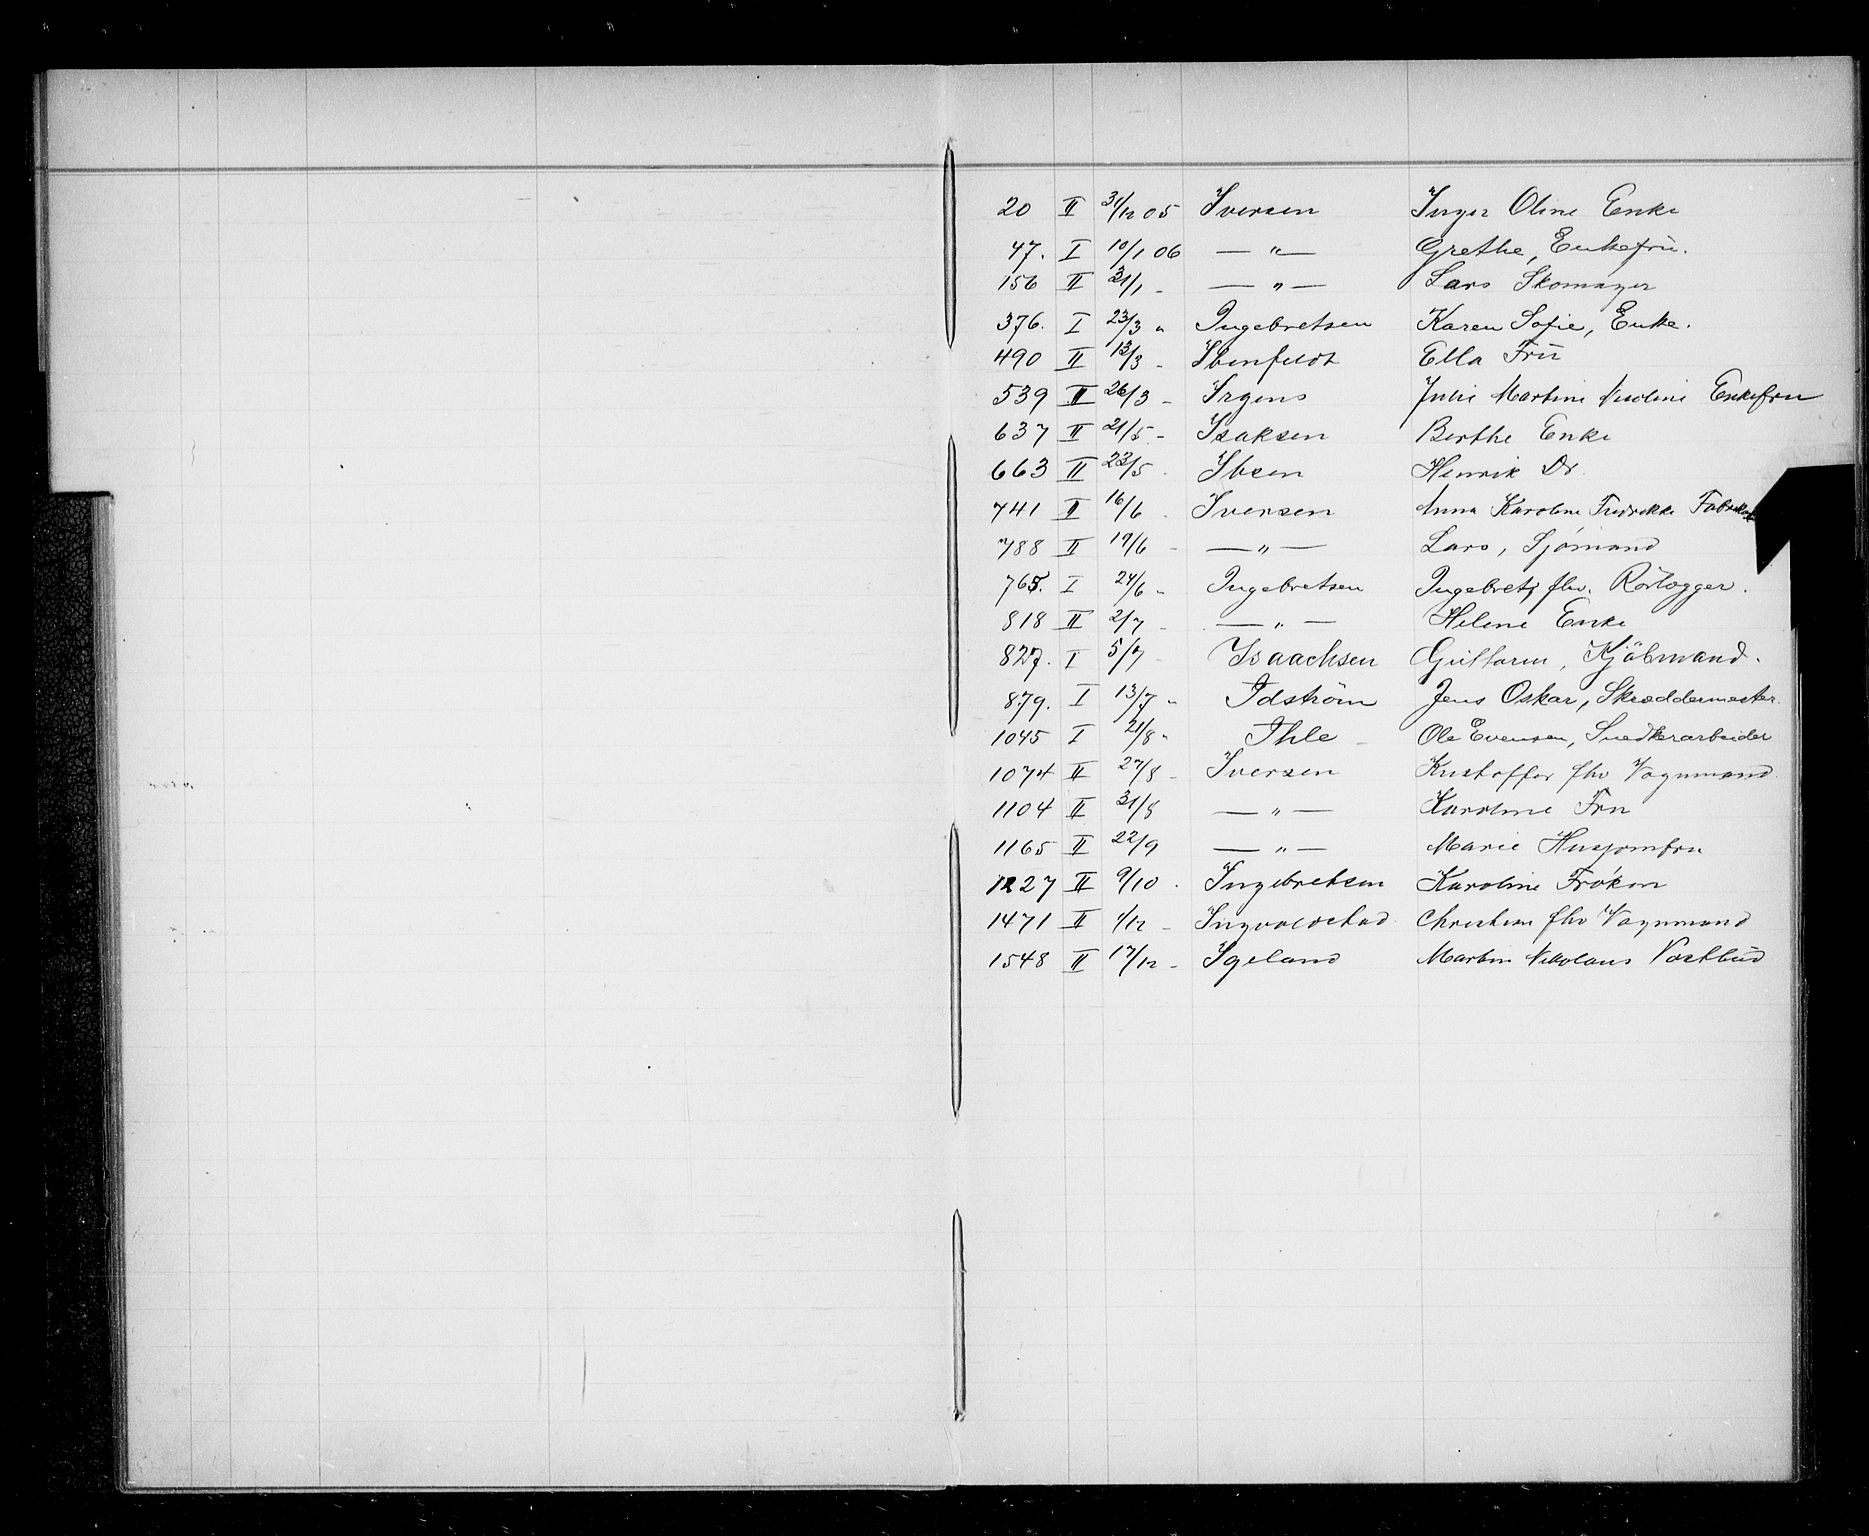 20 II 31/12 05 Iversen Inger Oline Enke
47. I 10/1 06 — " — Grethe, Enkefru.
156 II 31/1 - — " — Lars Skomager
376. I 23/3 " Ingebretsen Karen Sofie, Enke.
490 II 13/3 - Ibenfeldt Ella Frü
539 II 26/3 - Irgens Julie Martine Nicoline Enkefru
637 II 21/5 - Isaksen Berthe Enke
663 II 23/5 - Ibsen Henrik Dr.
741 II 16/6 - Iversen Anna Karoline Fredrikke
788 II 19/6 - — " — Lars, Sjömand
765. I 24/6 " Ingebretsen Ingebret, fhv. Rörlægger.
818 II 2/7 - — " — Helene Enke
827. I 5/7 - Isaachsen Guttorm, Kjöbmand.
879. I 13/7 " Idström Jens Oskar, Skræddermester.
1045 I 21/8 " Ihle Ole Evensen, Snedkerarbeider
1074 II 27/8 - Iversen Kristoffer fhv Vognmand
1104 II 31/8 — " — Karoline Fru
1165 II 22/9 — " — Marie Husjomfru
1227 II 9/10 - Ingebretsen Karoline Frøken
1471 II 1/12 - Ingvoldstad Christian fhv Vognmand
1548 II 17/12 - Igeland Martin Nikolaus Postbud